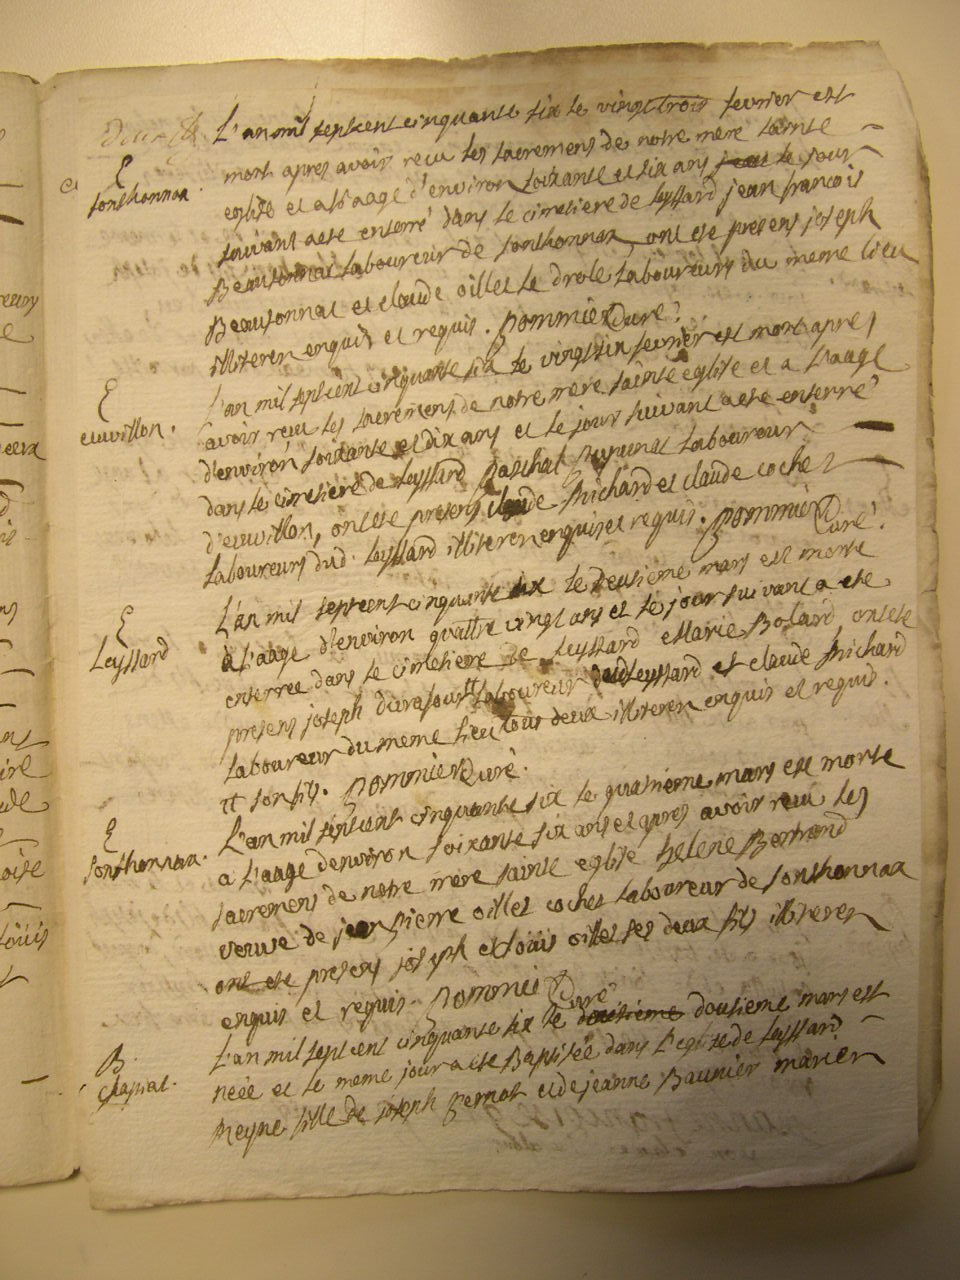 L'an mil septcent cinquante six le vingt trois fevrier est
E
sonthonnax.
mort apres avoir recu les sacremens de notre mere sainte
eglise et a l'aage d'environ soixante et six ans le jour
suivant a ete enterré dans le cimetiere de leyssard jean francois
Beausonnat laboureur de sonthonnax, ont ete presens joseph
Beausonnat et claude oillet le drole laboureurs du meme lieu
illiteren enquis et requis. pommier curé.
E
euvillon.
L'an mil septcent cinquante six le vingt six fevrier est mort apres
avoir recu les sacremens de notre mere sainte eglise et a l'aage
d'environ soixante et dix ans et le jour suivant a ete enterré
dans le cimetiere de leyssard paschal laboureur
d'euvillon, ont ete presens claude huchard et claude coche
laboureurs dud. leyssard illiteren enquis et requis. pommier curé.
E
Leyssard
L'an mil septcent cinquante six le deusieme mars est morte
à l'aage d'environ quattre vingt ans et le jour suivant a ete
enterrée dans le cimetiere de leyssard Marie Bolard, ont ete
presens joseph laboureur de leyssard et claude huchard
laboureur du meme lieu tous deux illiteren enquis et requis.
et son fils. pommier curé.
E
sonthonnax.
L'an mil septcent cinquante six le quatrieme mars est morte
a l'aage d'environ soixante six ans et apres avoir recu les
sacremens de notre mere sainte eglise helene Bertrand
veuve de jean pierre oillet cochet laboureur de sonthonnax
ont ete presens joseph et louis oillet ses deux fils illiteren
enquis et requis pommier curé
B.
chapiat.
L'an mil septcent cinquante six le deusieme dousieme mars est
neée et le meme jour a ete Baptisée dans l'eglise de leyssard
Reyne fille de joseph pernot et de jeanne Baunier mariés